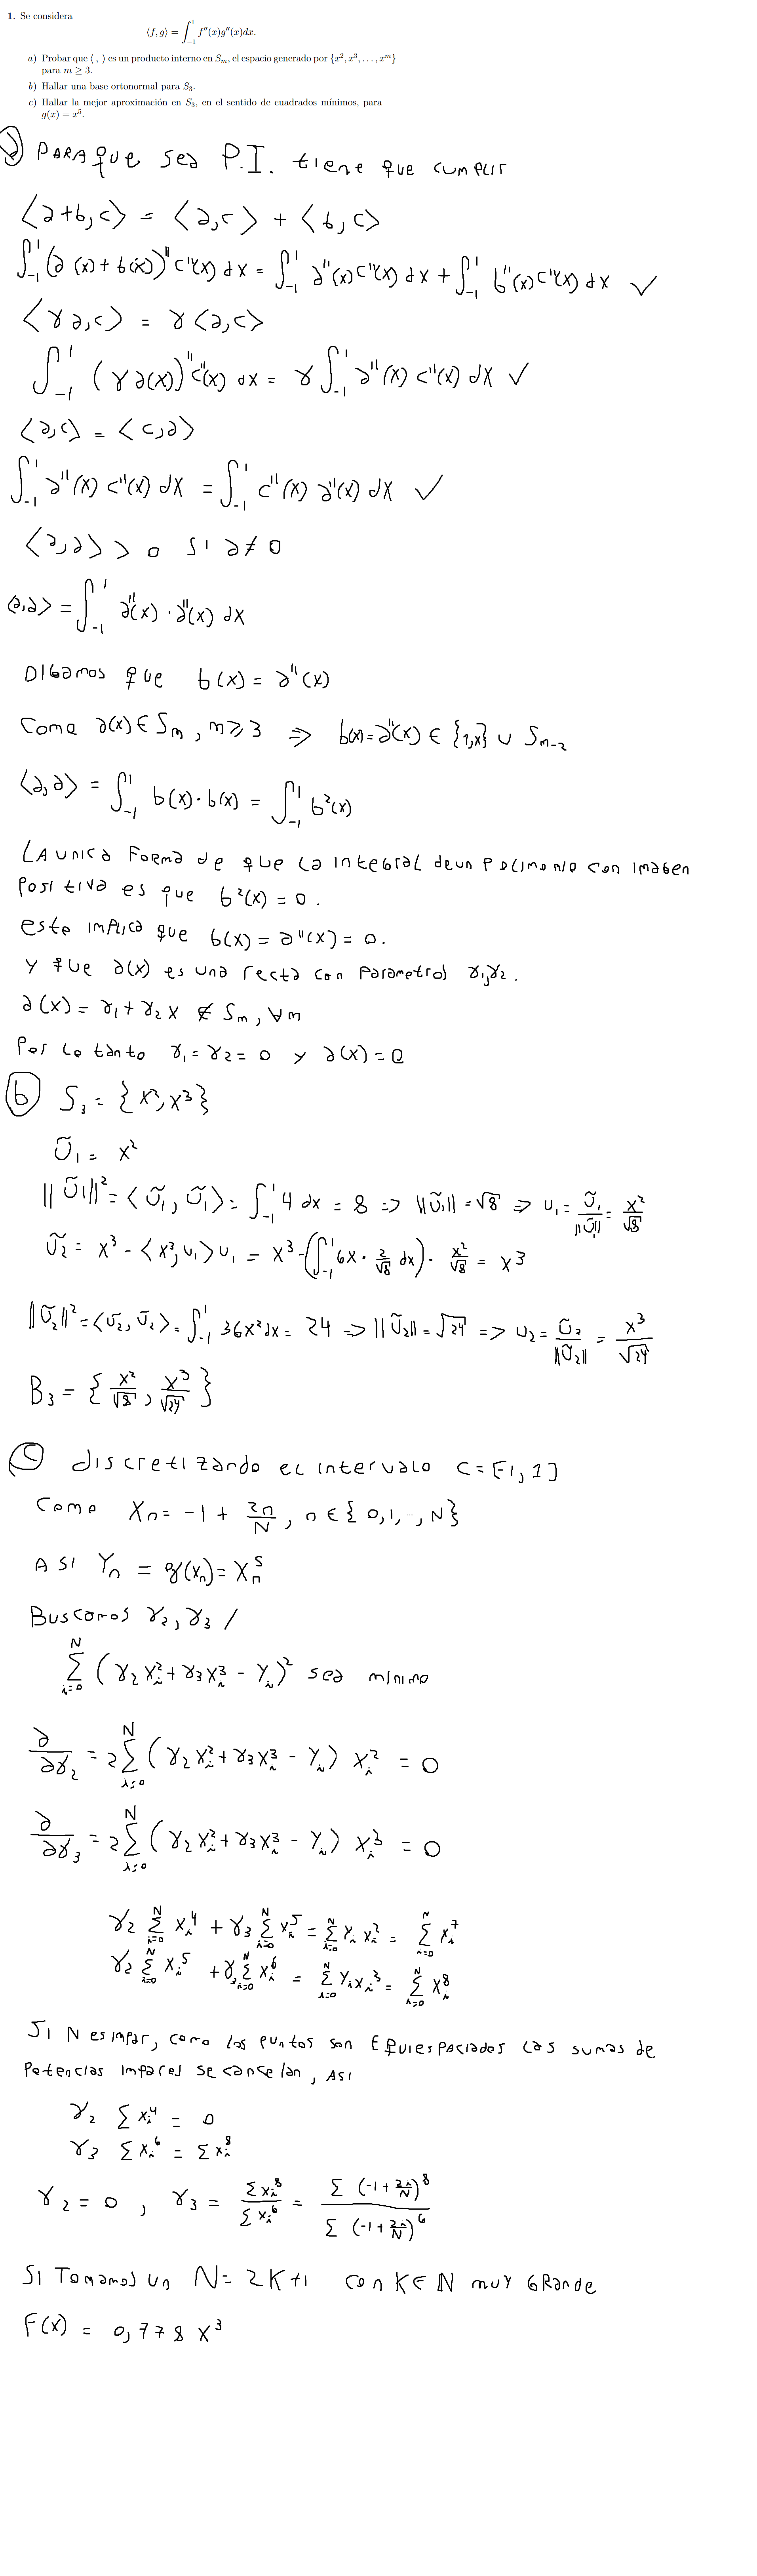 1. Se considera
⟨f, g⟩ = ∫_{-1}^{1} f''(x)g''(x)dx.
a) Probar que ⟨ , ⟩ es un producto interno en S_m, el espacio generado por {x², x³, . . . , x^m}
para m ≥ 3.
b) Hallar una base ortonormal para S₃.
c) Hallar la mejor aproximación en S₃, en el sentido de cuadrados mínimos, para
g(x) = x⁵.
a) PARA que sea P.I. tiene que cumplir
⟨a+b,c⟩ = ⟨a,c⟩ + ⟨b,c⟩
∫_{-1}^{1} (a(x) + b(x))'' c''(x) dx = ∫_{-1}^{1} a''(x) c''(x) dx + ∫_{-1}^{1} b''(x) c''(x) dx ✓
⟨γa,c⟩ = γ⟨a,c⟩
∫_{-1}^{1} (γ a(x))'' c''(x) dx = γ ∫_{-1}^{1} a''(x) c''(x) dx ✓
⟨a,c⟩ = ⟨c,a⟩
∫_{-1}^{1} a''(x) c''(x) dx = ∫_{-1}^{1} c''(x) a''(x) dx ✓
⟨a,a⟩ > 0 SI a ≠ 0
⟨a,a⟩ = ∫_{-1}^{1} a''(x) · a''(x) dx
Digamos que b(x) = a''(x)
Como a(x) ∈ S_m, m ≥ 3 ⇒ b(x) = a''(x) ∈ {1,x} ∪ S_{m-2}
⟨a,a⟩ = ∫_{-1}^{1} b(x)·b(x) = ∫_{-1}^{1} b²(x)
LA unica Forma de que la integral de un Polimonio con imagen
Positiva es que b²(x) = 0.
este implica que b(x) = a''(x) = 0.
Y que a(x) es una recta con Parametros γ₁,γ₂.
a(x) = γ₁ + γ₂ x ∉ S_m, ∀m
Por lo tanto γ₁ = γ₂ = 0 y a(x) = 0
b) S₃ = {x², x³}
Ũ₁ = x²
||Ũ₁||² = ⟨Ũ₁, Ũ₁⟩ = ∫_{-1}^{1} 4 dx = 8 => ||Ũ₁|| = √8 => U₁ = Ũ₁/||Ũ₁|| = x²/√8
Ũ₂ = x³ - ⟨x³, u₁⟩ u₁ = x³ - (∫_{-1}^{1} 6x · 2/√8 dx) · x²/√8 = x³
||Ũ₂||² = ⟨Ũ₂, Ũ₂⟩ = ∫_{-1}^{1} 36x² dx = 24 => ||Ũ₂|| = √24 => U₂ = Ũ₂/||Ũ₂|| = x³/√24
B₃ = {x²/√8, x³/√24}
c) discretizando el intervalo C = [-1, 1]
Como X_n = -1 + 2n/N, n ∈ {0,1,..,N}
ASI Y_n = g(x_n) = X_n⁵
Buscamos γ₂, γ₃ /
∑_{i=0}^{N} (γ₂ x_i² + γ₃ x_i³ - Y_i)² sea minimo
∂/∂γ₂ = 2 ∑_{i=0}^{N} (γ₂ x_i² + γ₃ x_i³ - Y_i) x_i² = 0
∂/∂γ₃ = 2 ∑_{i=0}^{N} (γ₂ x_i² + γ₃ x_i³ - Y_i) x_i³ = 0
γ₂ ∑_{i=0}^{N} x_i⁴ + γ₃ ∑_{i=0}^{N} x_i⁵ = ∑_{i=0}^{N} Y_i x_i² = ∑_{i=0}^{N} x_i⁷
γ₂ ∑_{i=0}^{N} x_i⁵ + γ₃ ∑_{i=0}^{N} x_i⁶ = ∑_{i=0}^{N} Y_i x_i³ = ∑_{i=0}^{N} x_i⁸
SI N es impar, como los puntos son Equiespaciados las sumas de
Potencias impares se cancelan, ASI
γ₂ ∑ x_i⁴ = 0
γ₃ ∑ x_i⁶ = ∑ x_i⁸
γ₂ = 0 , γ₃ = ∑x_i⁸/∑x_i⁶ = ∑ (-1 + 2i/N)⁸ / ∑ (-1 + 2i/N)⁶
SI Tomamos un N = 2K+1 con K ∈ ℕ muy GRande
F(x) = 0,778 x³